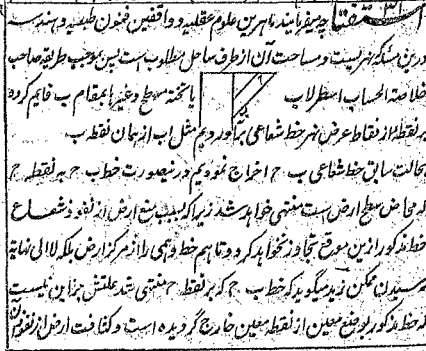 استفتا چه میفرمایند ماهرین علوم عقلیه و واقفین فنون طبعیه و هندسه
درین مسئله که نهریست و مساحت آن از طرف ساحل مطلوب ست پس بموجب طریقه صاحب
خلاصة الحساب اصطرلاب یا تخته مسطح وغیره بمقام ب قایم کرده
بر نقطه از نقاط عرض نهر خط شعاعی برآوردیم مثل اب از همان نقطه ب
بحالت سابق خط شعاعی ب ج اخراج نمودیم درینصورت خط ب ج به نقطه ج
که محاض سطح ارض ست منتهی خواهد شد زیراکه بسبب منع ارض از نفوذ شعاع
خط مذکور ازین موقع تجاوز نخواهد کرد و تا هم خط وهمی را از مرکز ارض بلکه لا الی نهایة
رسیدن ممکن زید میگوید که خط ب ج که بر نقطه ج منتهی شد علتش جز این نیست
که خط مذکور بوضع معین از نقطه معین خارج گردیده است و کثافت ارض از نفوذش